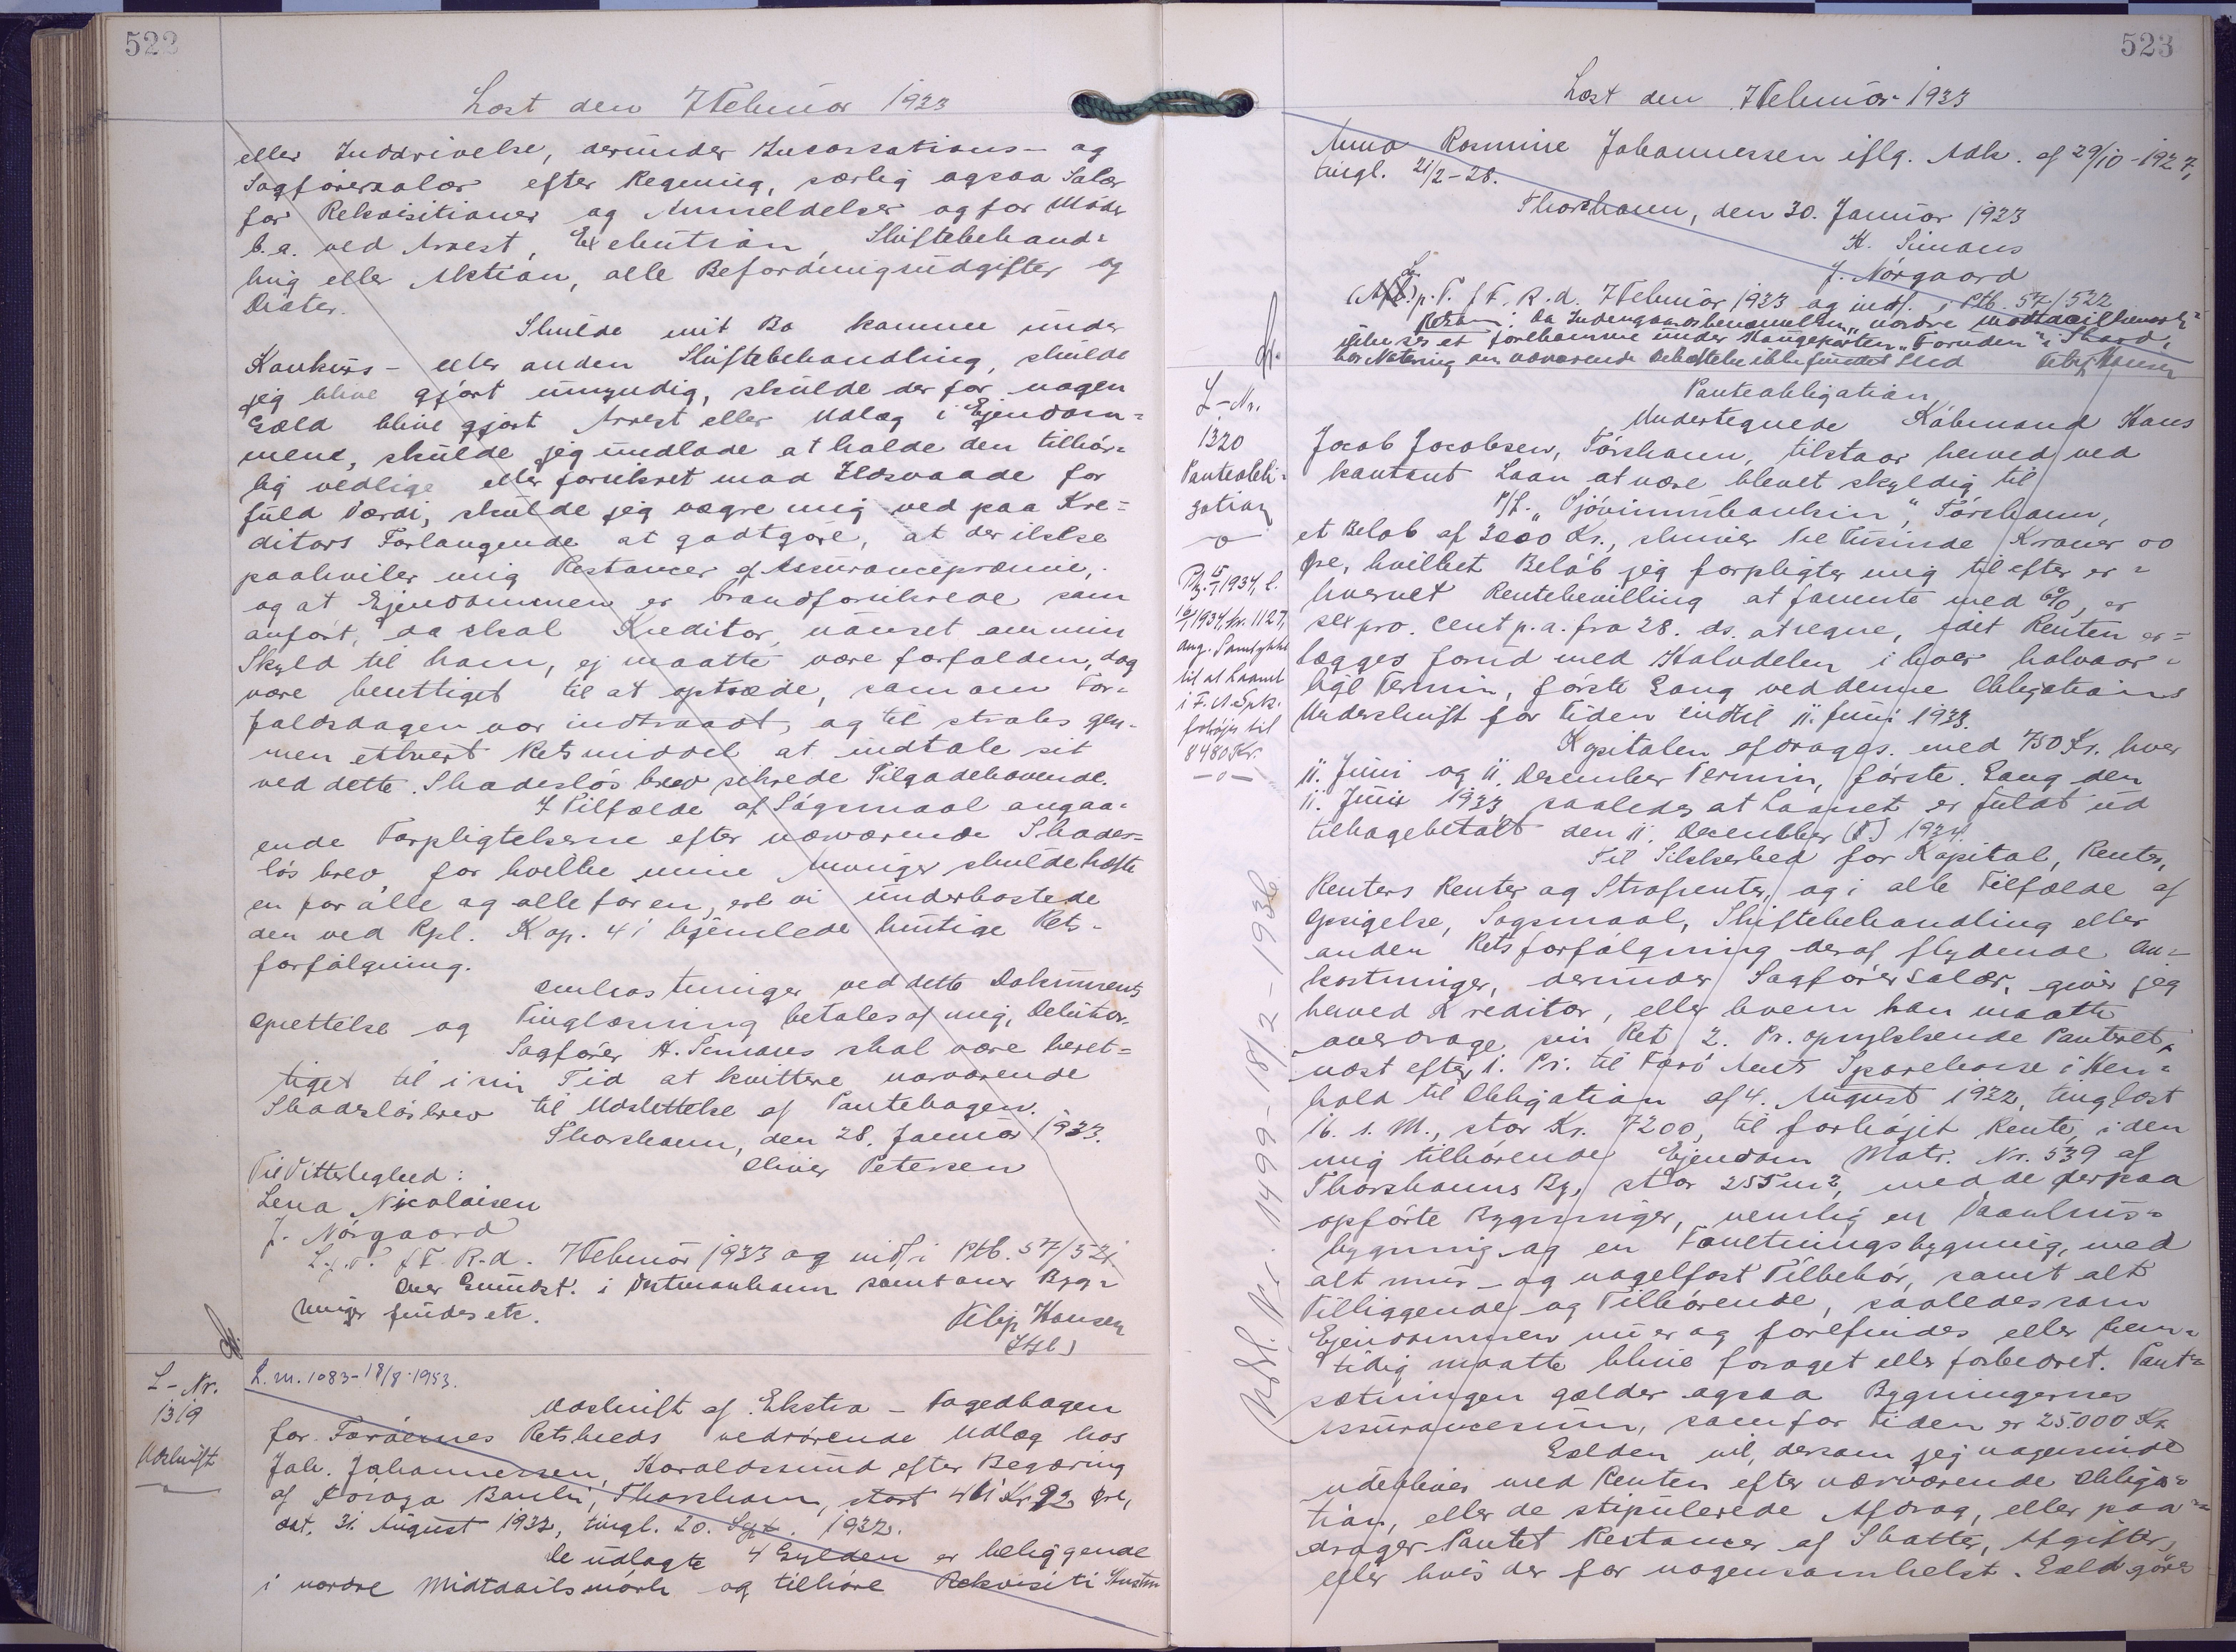 522
Læst den 7 Februar 1933
eller Inddrivelse, derunder Incassations- og
Sagførersalær efter Regning, særlig ogsaa Salær
for Rekvisitioner og Anmeldelser og for Møder
b.a. ved Arrest, Exekution, Skiftebehand=
ling eller Auktion, alle Befordringsudgifter og
Diæter.
Skulde mit Bo komme under
Konkurs- eller anden Skiftebehandling, skulde
jeg blive gjort umyndig, skulde der for nogen
Gæld blive gjort Arrest eller Udlæg i Ejendom=
mene, skulde jeg undlade at holde den tilbør=
lig vedlige eller forsikret mod Ildsvaade for
fuld Værdi, skulde jeg vægre mig ved paa Kre=
ditors Forlangende at godtgøre, at der ikke
paahviler mig Restancer af Assurancepræmie,
og at Ejendommen er brandforsikrede som
anført, da skal Kreditor, uanset om min
Skyld til ham, ej maatte være forfalden, dog
være berettiget til at optræde, som om For=
faldsdagen var indtraadt, og til straks gen=
nem ethvert Retsmiddel at indtale sit
ved dette Skadesløsbrev sikrede Tilgodehavende.
I Tilfælde af Søgsmaal angaa=
ende Forpligtelserne efter nærværende Skades=
løsbrev, for hvilke mine Arvinger skulde hæfte
en for alle og alle for en, ere vi underkastede
den ved Rpl. Kap. 41 hjemlede hurtige Rets-
forfølgning.
Omkostninger ved dette Dokuments
Oprettelse og Tinglæsning betales af mig, Debitor.
Sagfører H. Simans skal være beret=
tiget til i sin Tid at kvittere nærværende
Skadesløsbrev til Udslettelse af Pantebogen.
Thorshavn, den 28. Januar 1933.
Oliver Petersen
Til Vitterlighed:
Lena Nicolaisen
J. Nørgaard
L.p.T. f F. R-d. 7 Februar 1933 og indf. i Ptb. 57/521
Over Grundst. i Vestmanhavn samt over Byg=
ninger findes etc.
Filip Hansen
L-Nr.
1319
Udskrift
L. M. 1083-18/8-1953.
Udskrift af Ekstra-Fogedbogen
for Færøernes Retskreds vedrørende Udlæg hos
Joh. Johannessen, Haraldssund efter Begæring
af Føroya Banki, Thorshavn, stort 461 Kr. 92 Øre,
dat. 31. August 1932, tingl. 20. Sept. 1932.
De udlagte 4 Gylden er beliggende
i nordre Midtdailsmørk og tilhøre Rekvisiti Hustru
523
Læst den 7 Februar 1933
Anna Rosmine Johannessen iflg. Adk. af 29/10-1927,
tingl. 21/2-28.
Thorshavn, den 30. Januar 1933
H. Simans
J. Nørgaard
L.p.T. f F. R.d. 7 Februar 1933 og indf. i Ptb. 57/522
Retsanm.: Da Indengaardsbenævnelsen „nordre Midtdailsmørk"
ikke ses at forekomme under Kongeparten „Foruden" i Skaard,
har Notering om nærværende Udskrift ikke fundet Sted Filip Hansen
L-Nr.
1320
Panteobli=
gation
Pt. 15/1 1934, L.
16/1 1934, Nr. 1127,
ang. Samtykke
til at Laanet
i F. A. Spk.
forhøjes til
8480 Kr.
Panteobligation
Undertegnede Købmand Hans
Jacob Jacobsen, Tórshavn, tilstaar herved ved
kontant Laan at være blevet skyldig til
P/F. „Sjóvinnubankin", Tórshavn,
et Beløb af 3000 Kr., skriver tre Tusinde Kroner 00
Øre, hvilket Beløb jeg forpligter mig til efter er=
hvervet Rentebevilling at forrente med 6%, er
sex pro. cent p.a. fra 28. ds. at regne, idet Renten er=
lægges forud med Halvdelen i hver halvaar=
lige Termin, første Gang ved denne Obligations
Underskrift for Tiden indtil 11. Juni 1933.
Kapitalen afdrages med 750 Kr. hver
11. Juni og 11. December Termin, første Gang den
11. Juni 1933, saaledes at Laanet er fuldt ud
tilbagebetalt den 11. December (T.) 1934.
Til Sikkerhed for Kapital, Renter,
Renters Renter og Strafrenter, og i alle Tilfælde af
Opsigelse, Søgsmaal, Skiftebehandling eller
anden Retsforfølgning deraf flydende Om=
kostninger, derunder Sagførersalær, giver jeg
herved Kreditor, eller hvem han maatte
overdrage sin Ret 2. Pr. oprykkende Panteret,
næst efter 1. Pr. til Færø Amts Sparekasse i Hen=
hold til Obligation af 4. August 1932, tinglæst
16. s. M., stor Kr. 7200, til forhøjet Rente, i den
mig tilhørende Ejendom Matr. Nr. 539 af
Thorshavns By, stor 255 m², med de derpaa
opførte Bygninger, nemlig en Vaanhus=
bygning og en Forretningsbygning, med
alt mur- og nagelfast Tilbehør, samt alt
Tilliggende og Tilhørende, saaledes som
Ejendommen nu er og forefindes eller frem=
tidig maatte blive forøget eller forbedret. Pant=
sætningen gælder ogsaa Bygningernes
Assurancesum, som for Tiden er 25.000 Kr.
Gælden vil, dersom jeg nogensinde
udebliver med Renten efter nærværende Obliga=
tion, eller de stipulerede Afdrag, eller paa=
drager Pantet Restancer af Skatter, Afgifter,
eller hvis der for nogensomhelst Gæld gøres
Udsl. Nr. 1499-18/2-1936